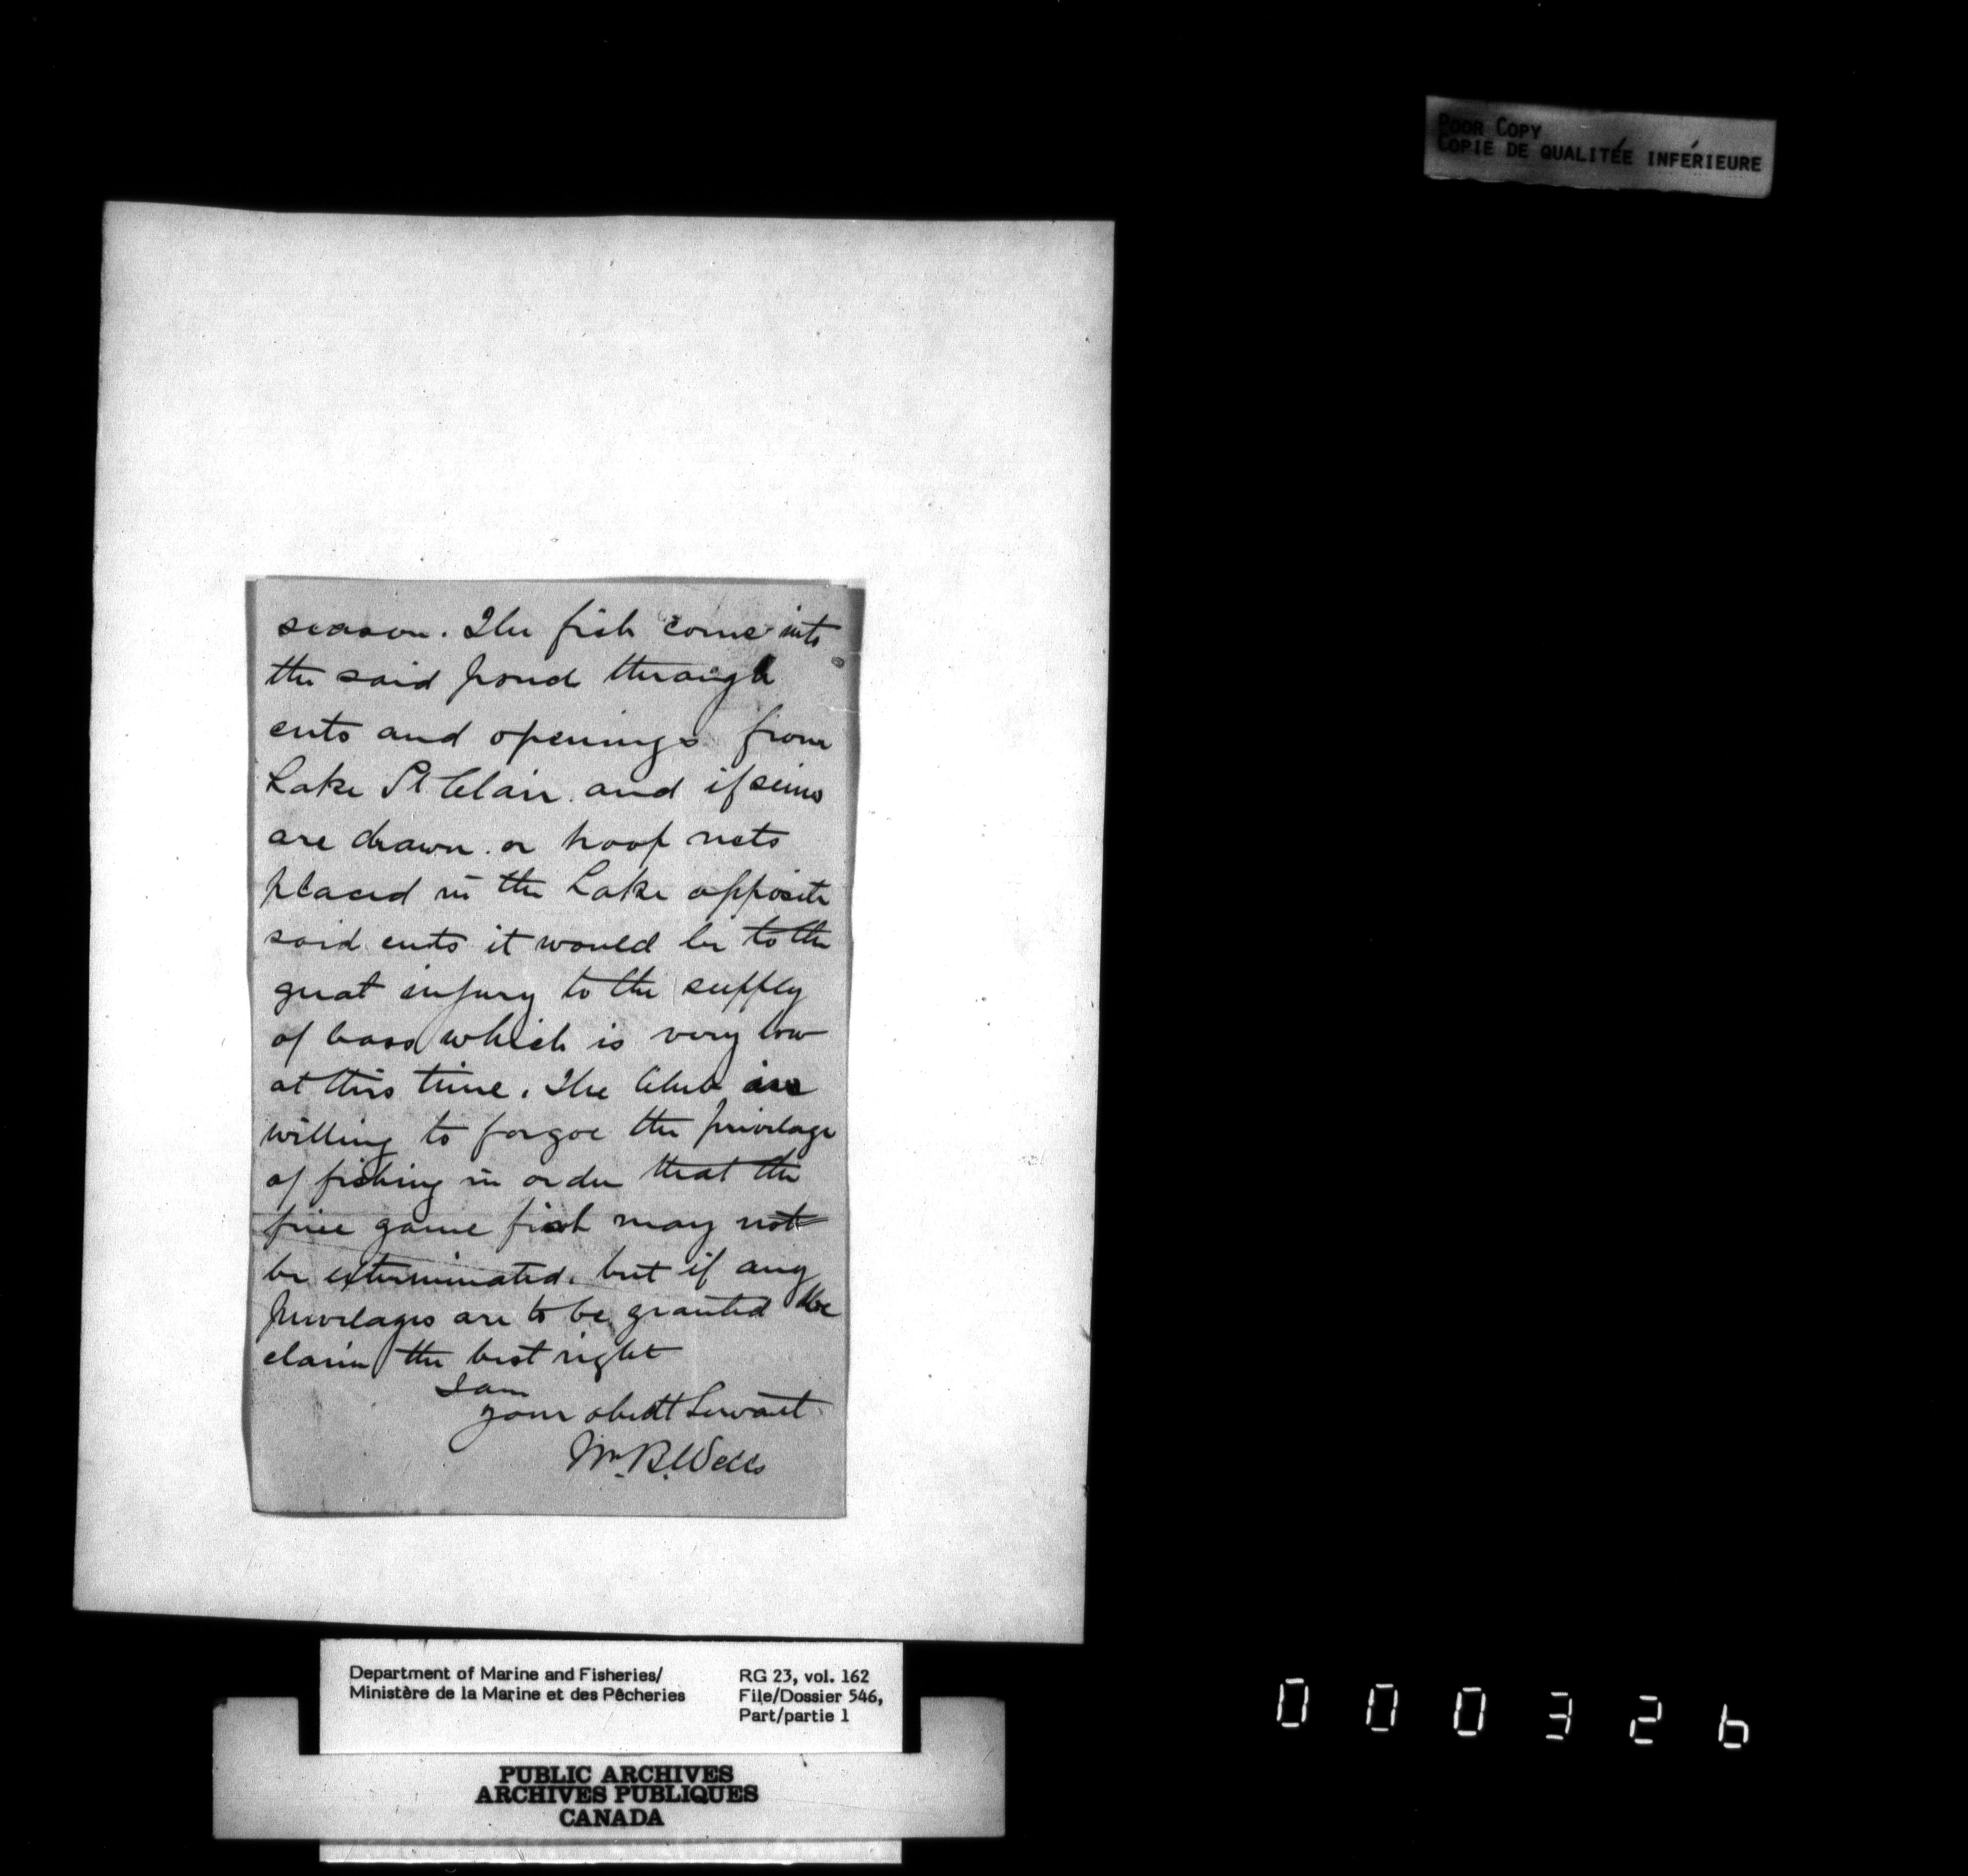 POOR COPY
COPIE DE QUALITÉE INFÉRIEURE
season. The fish come into
the said pond through
cuts and openings from
Lake St Clair and if seins
are drawn or hoof nets
placed in the Lake opposite
said cuts it would be to the
great injury to the supply
of bass which is very low
at this time. The Club are
willing to forgoe the privelage
of fishing in order that the
fine game fish may not
be exterminated. but if any
privelages are to be granted we
claim the best right
I am
your obedtt Servant
Wm. B. Wells
Department of Marine and Fisheries/
Ministère de la Marine et des Pêcheries
RG 23, vol. 162
File/Dossier 546,
Part/partie 1
PUBLIC ARCHIVES
ARCHIVES PUBLIQUES
CANADA
000326